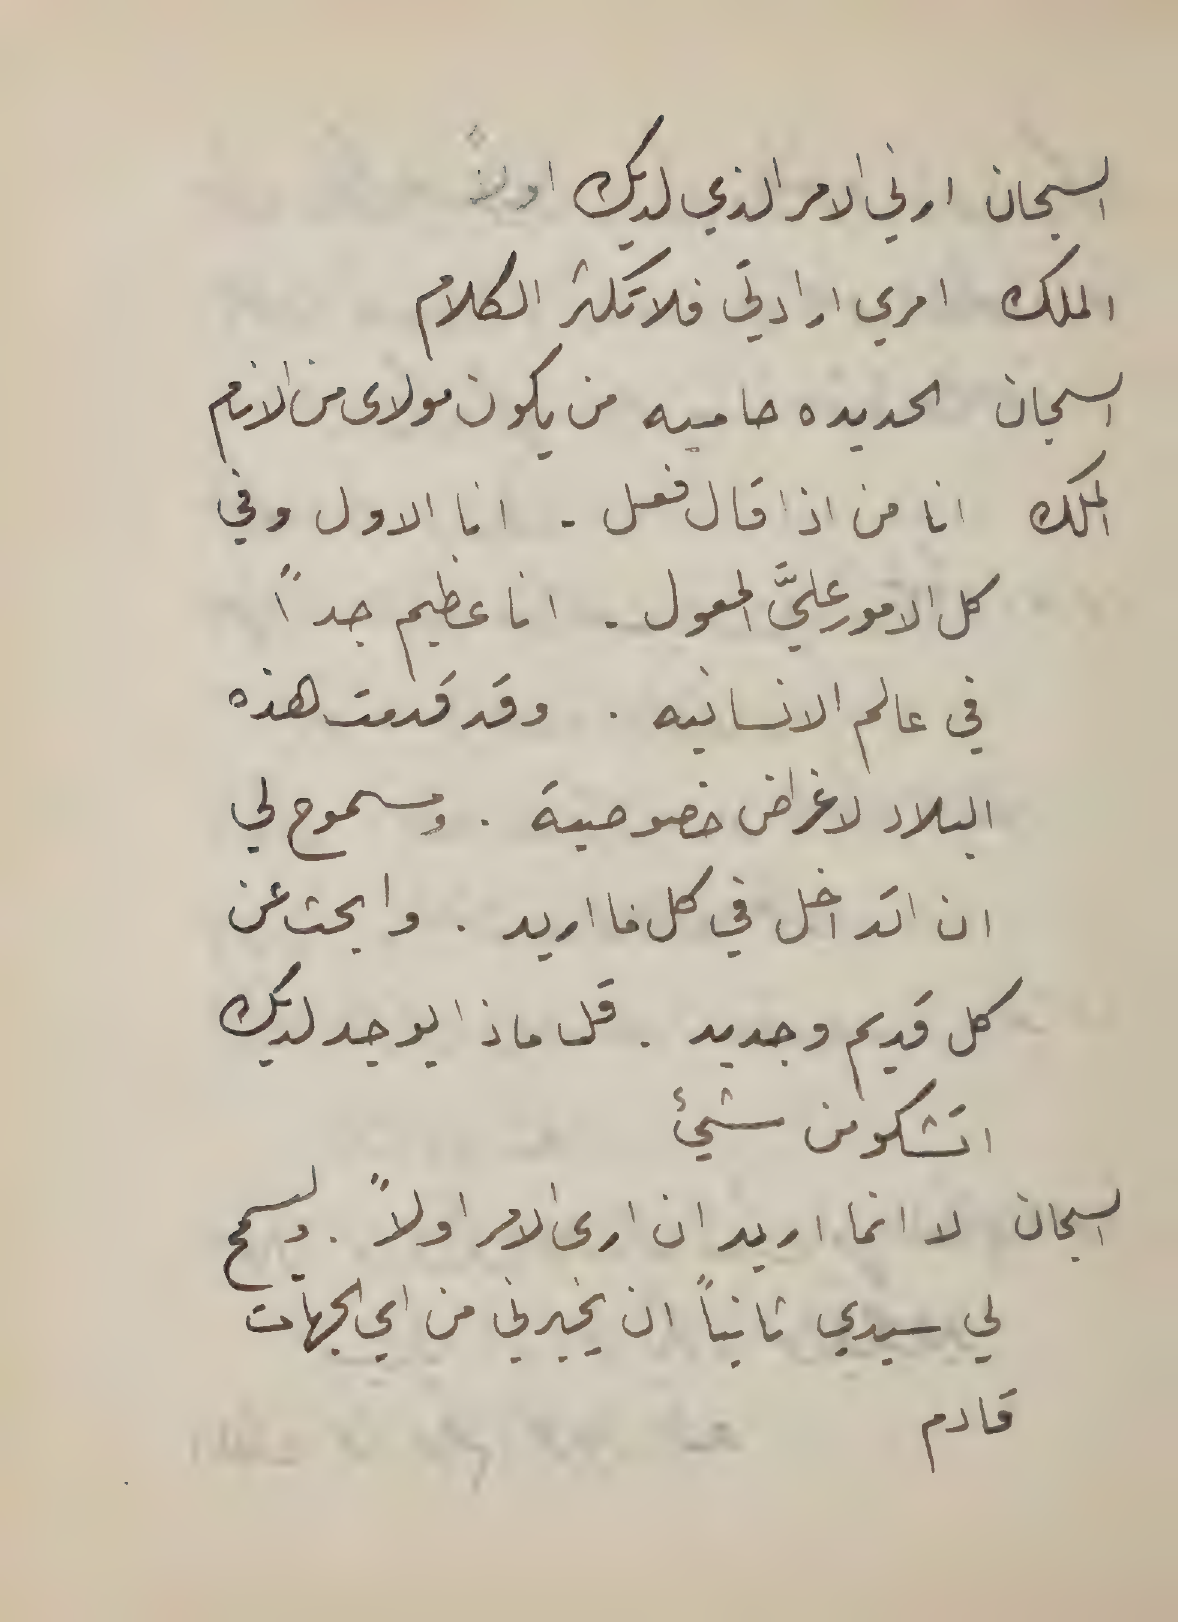 السجان ارني الامر الذي لديك اولاً
الملك امري ارادتي فلا تكثر الكلام
السجان الحديده حاميه من يكون مولاى من الانام
الملك انا من اذا قال فعل . انا الاول وفي
كل الامور عليَّ المعول . انا عظيم جداً
في عالم الانسانيه . وقد قدمت هذه
البلاد لاغراض خصوصية . ومسموح لي
ان اتداخل في كل ما اريد . وابحث عن
كل قديم وجديد . قل ماذا يوجد لديك
اتشكو من شيئ
السجان لا انما اريد ان ارى الامر اولاً . وليسمح
لي سيدي ثانياً ان يخبرني من اي الجهات
قادم